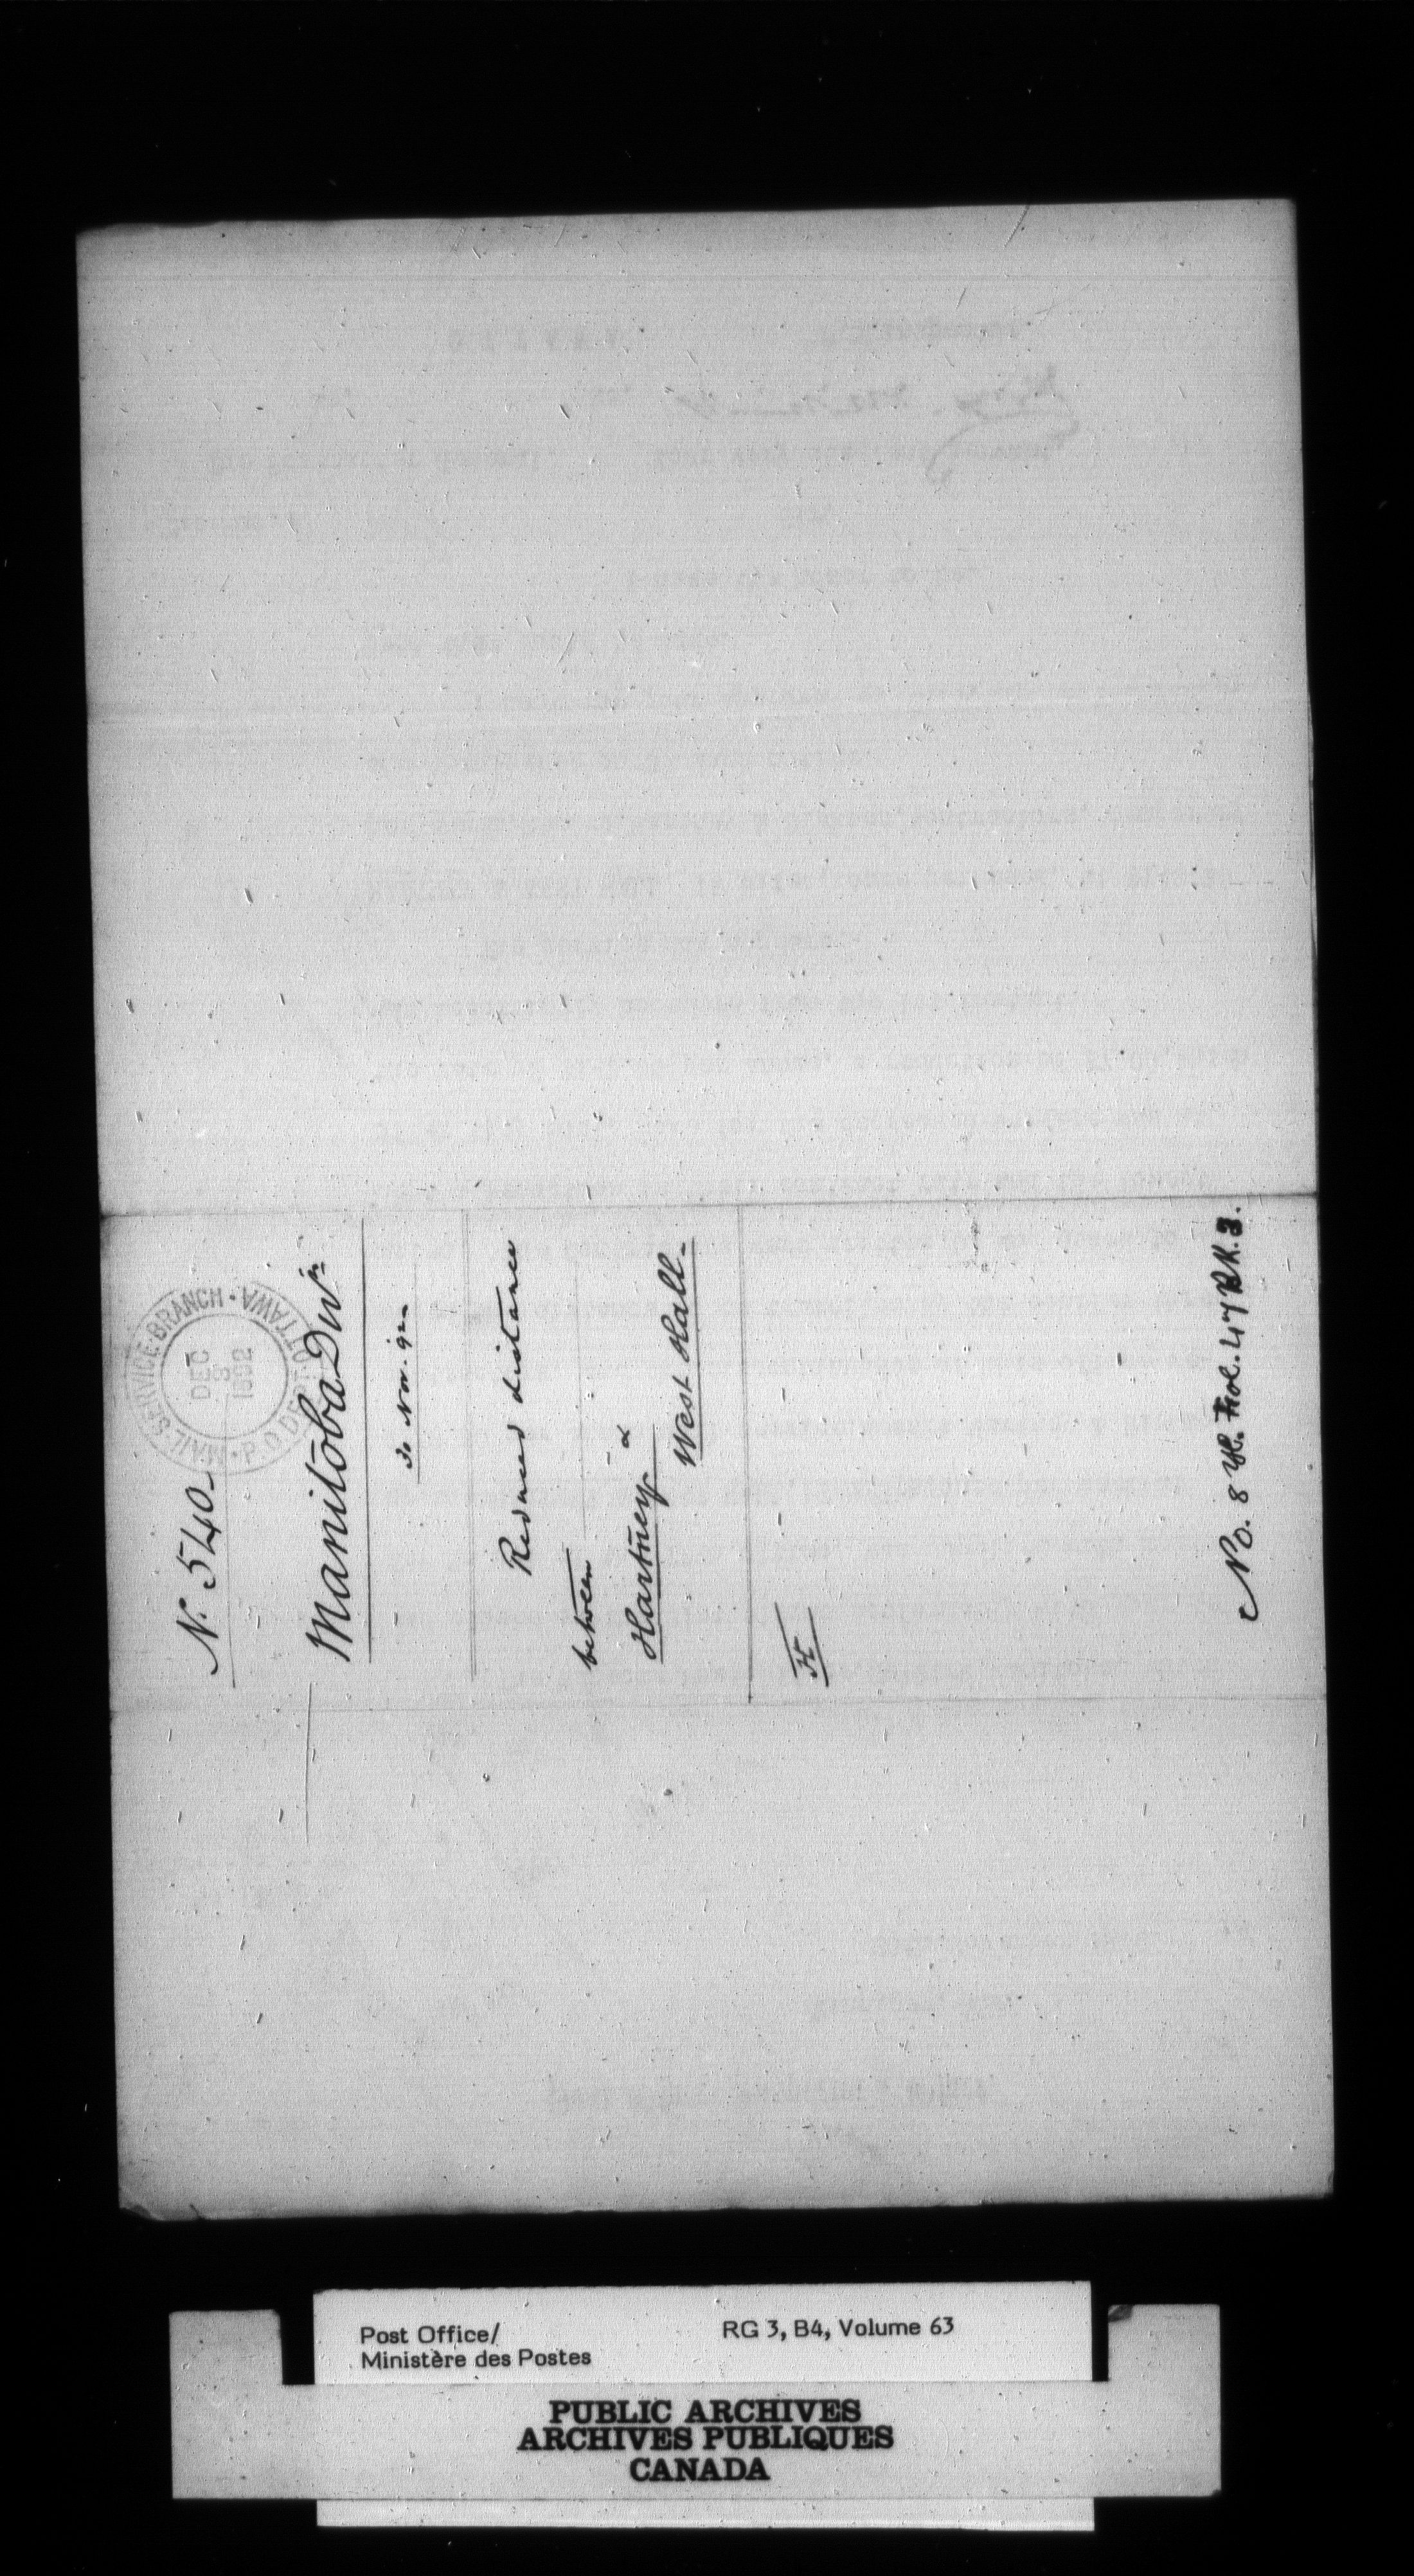 N. 540
MAIL SERVICE BRANCH • OTTAWA • P.O. DEPT
DEC
3
1892
Manitoba Divn
30 Nov. 92
Reduced distance
between
Hartney &
West Hall
H
No. 8 Fol. 47 BK. 3.
Post Office/
Ministère des Postes
RG 3, B4, Volume 63
PUBLIC ARCHIVES
ARCHIVES PUBLIQUES
CANADA